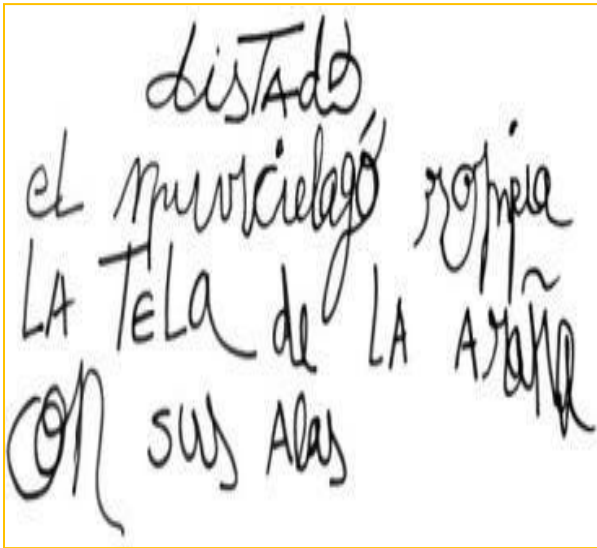 LisTAdO
el murcielagó rompia
LA TELA de LA ArAñA
con sus Alas